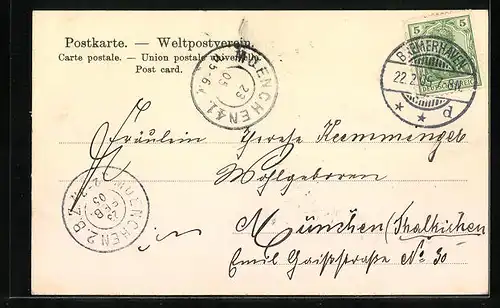 Postkarte. — Weltpostverein.
Carte postale. — Union postale universelle.
Post card.
5 5
DEUTSCHES REICH
BREMERHAVEN
22.2.05 8-9N
* * d
MUENCHEN 41
23
05
MUENCHEN 2.B.Z.
23
FEB
05
Fräulein Therese Kemmengeb
Wohlgeboren
in München (Thalkirchen
Emil Geisstraße No 30